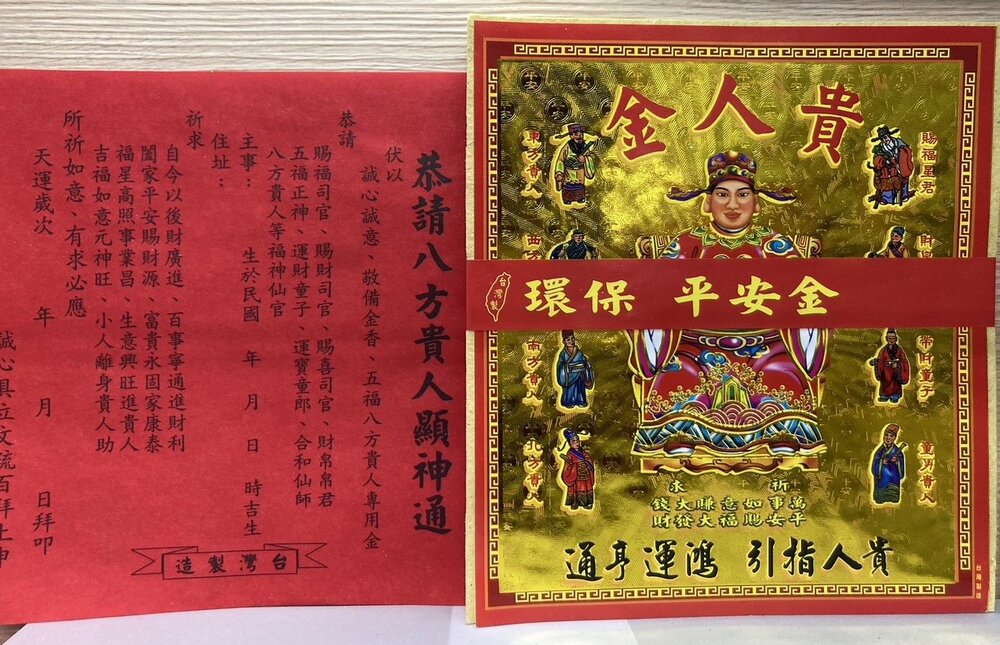 恭請八方貴人顯神通
伏以
誠心誠意、敬備金香、五福八方貴人專用金
恭請
賜福司官、賜財司官、賜喜司官、財帛帛君
五福正神、運財童子、運寶童郎、合和仙師
八方貴人等福神仙官
主事： 生於民國 年 月 日 時吉生
住址：
祈求
自今以後財廣進、百事寧通進財利
闔家平安賜財源、富貴永固家康泰
福星高照事業昌、生意興旺進貴人
吉福如意元神旺、小人離身貴人助
所祈如意、有求必應
天運歲次 年 月 日拜叩
誠心具立文疏百拜上申
台灣製造
貴人金
賜福星君
東方貴人
台灣製
環保 平安金
帶財童子
南方貴人
童男貴人
北方貴人
祈求
萬事如意賺大錢
平安賜福大發財
貴人指引 鴻運亨通
台灣製造